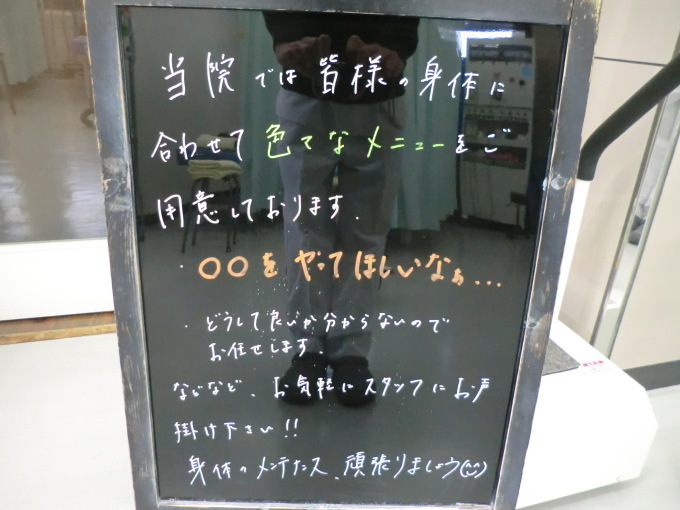 当院では皆様の身体に
合わせて色々なメニューをご
用意しております.
・〇〇をやってほしいなぁ...
・どうして良いか分からないので
お任せします
などなど、お気軽にスタッフにお声
掛け下さい!!
身体のメンテナンス、頑張りましょう